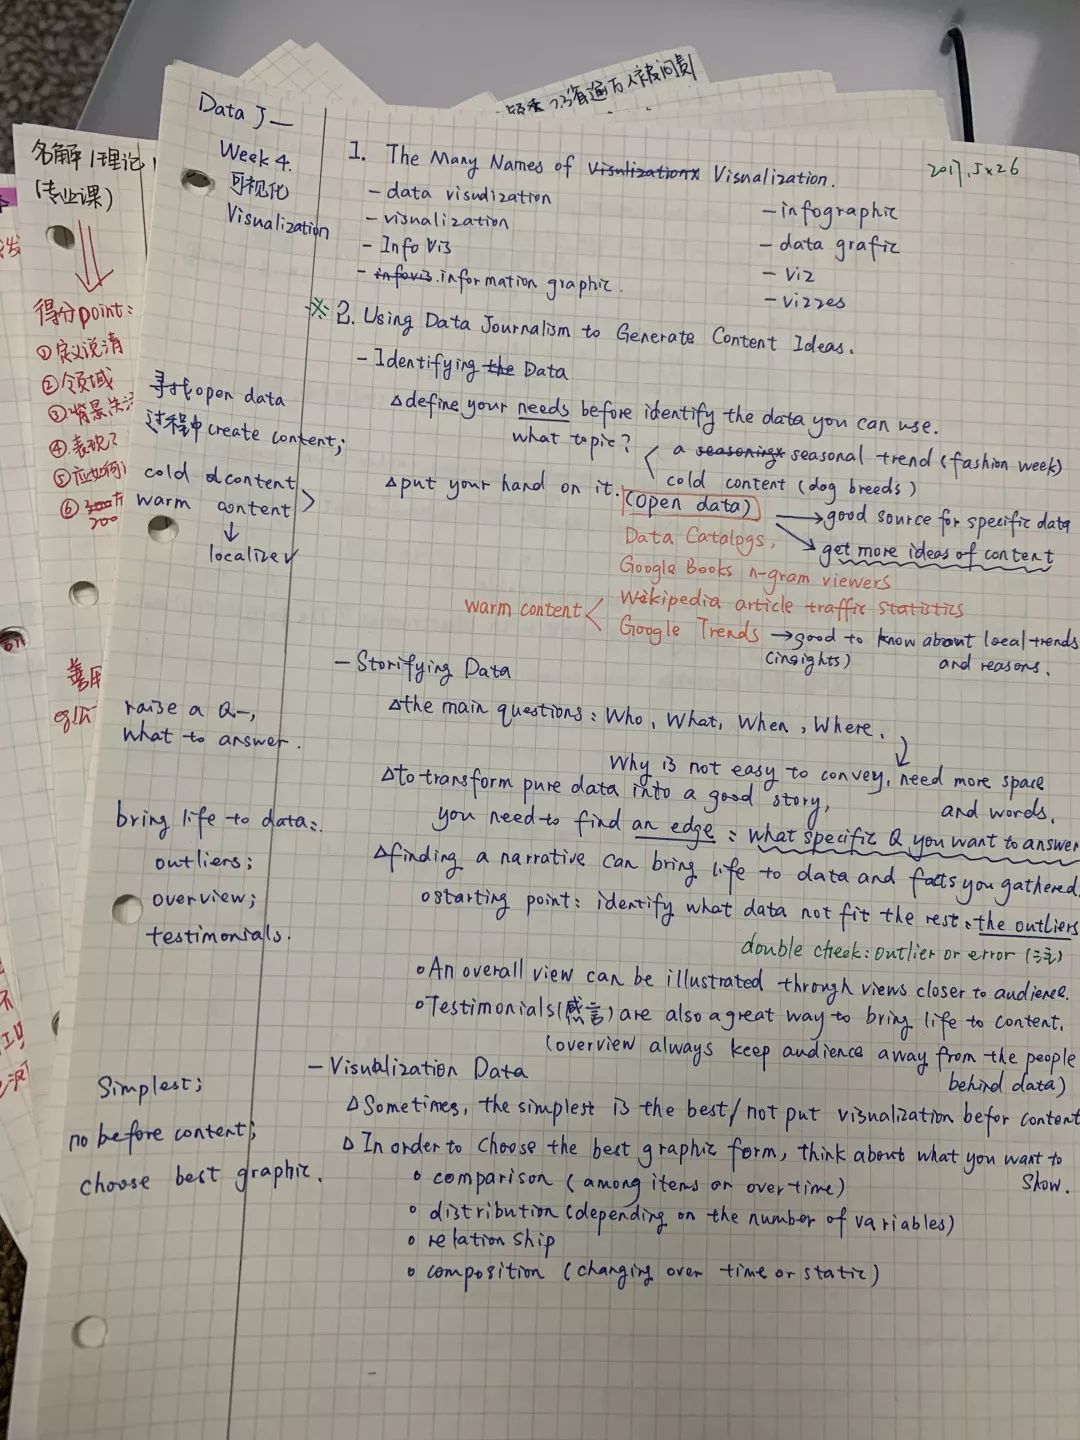 Data J—
Week 4.
可视化
Visualization
2017.5x26
1. The Many Names of Visulizationx Visualization.
- data visudization
- visualization
- Info Vis
- infovis. information graphic.
- infographic
- data grafic
- Viz
- vizzes
※ 2. Using Data Journalism to Generate Content Ideas.
- Identifying the Data
△ define your needs before identify the data you can use.
what topic? < a seasoningx seasonal trend (fashion week)
cold content (dog breeds)
△ put your hand on it. (open data) → good source for specific data
→ get more ideas of content
Data Catalogs,
Google Books n-gram viewers
warm content < Wikipedia article traffic statistics
Google Trends → good to know about local trends
(insights) and reasons.
寻找open data
过程中create content;
cold content
warm content >
↓
localize√
- Storifying Data
△ the main questions: Who, What, When, Where.
Why is not easy to convey, need more space
and words.
raise a Q—,
what to answer.
△ to transform pure data into a good story,
you need to find an edge: what specific Q you want to answer
△ finding a narrative can bring life to data and facts you gathered.
○ starting point: identify what data not fit the rest: the outliers
double check: outlier or error (注)
○ An overall view can be illustrated through views closer to audience.
○ Testimonials(感言) are also a great way to bring life to content.
(overview always keep audience away from the people
behind data)
bring life to data:
outliers;
overview;
testimonials.
- Visualization Data
△ Sometimes, the simplest is the best/not put visualization befor content
△ In order to choose the best graphic form, think about what you want to
show.
○ comparison (among items or over time)
○ distribution (depending on the number of variables)
○ relation ship
○ composition (changing over time or static)
Simplest;
no before content;
choose best graphic.
名解 1理论
(专业课)
得分point:
①定义说清
②领域
③背景
④表现
⑤应如何
⑥300
200
万人被问责